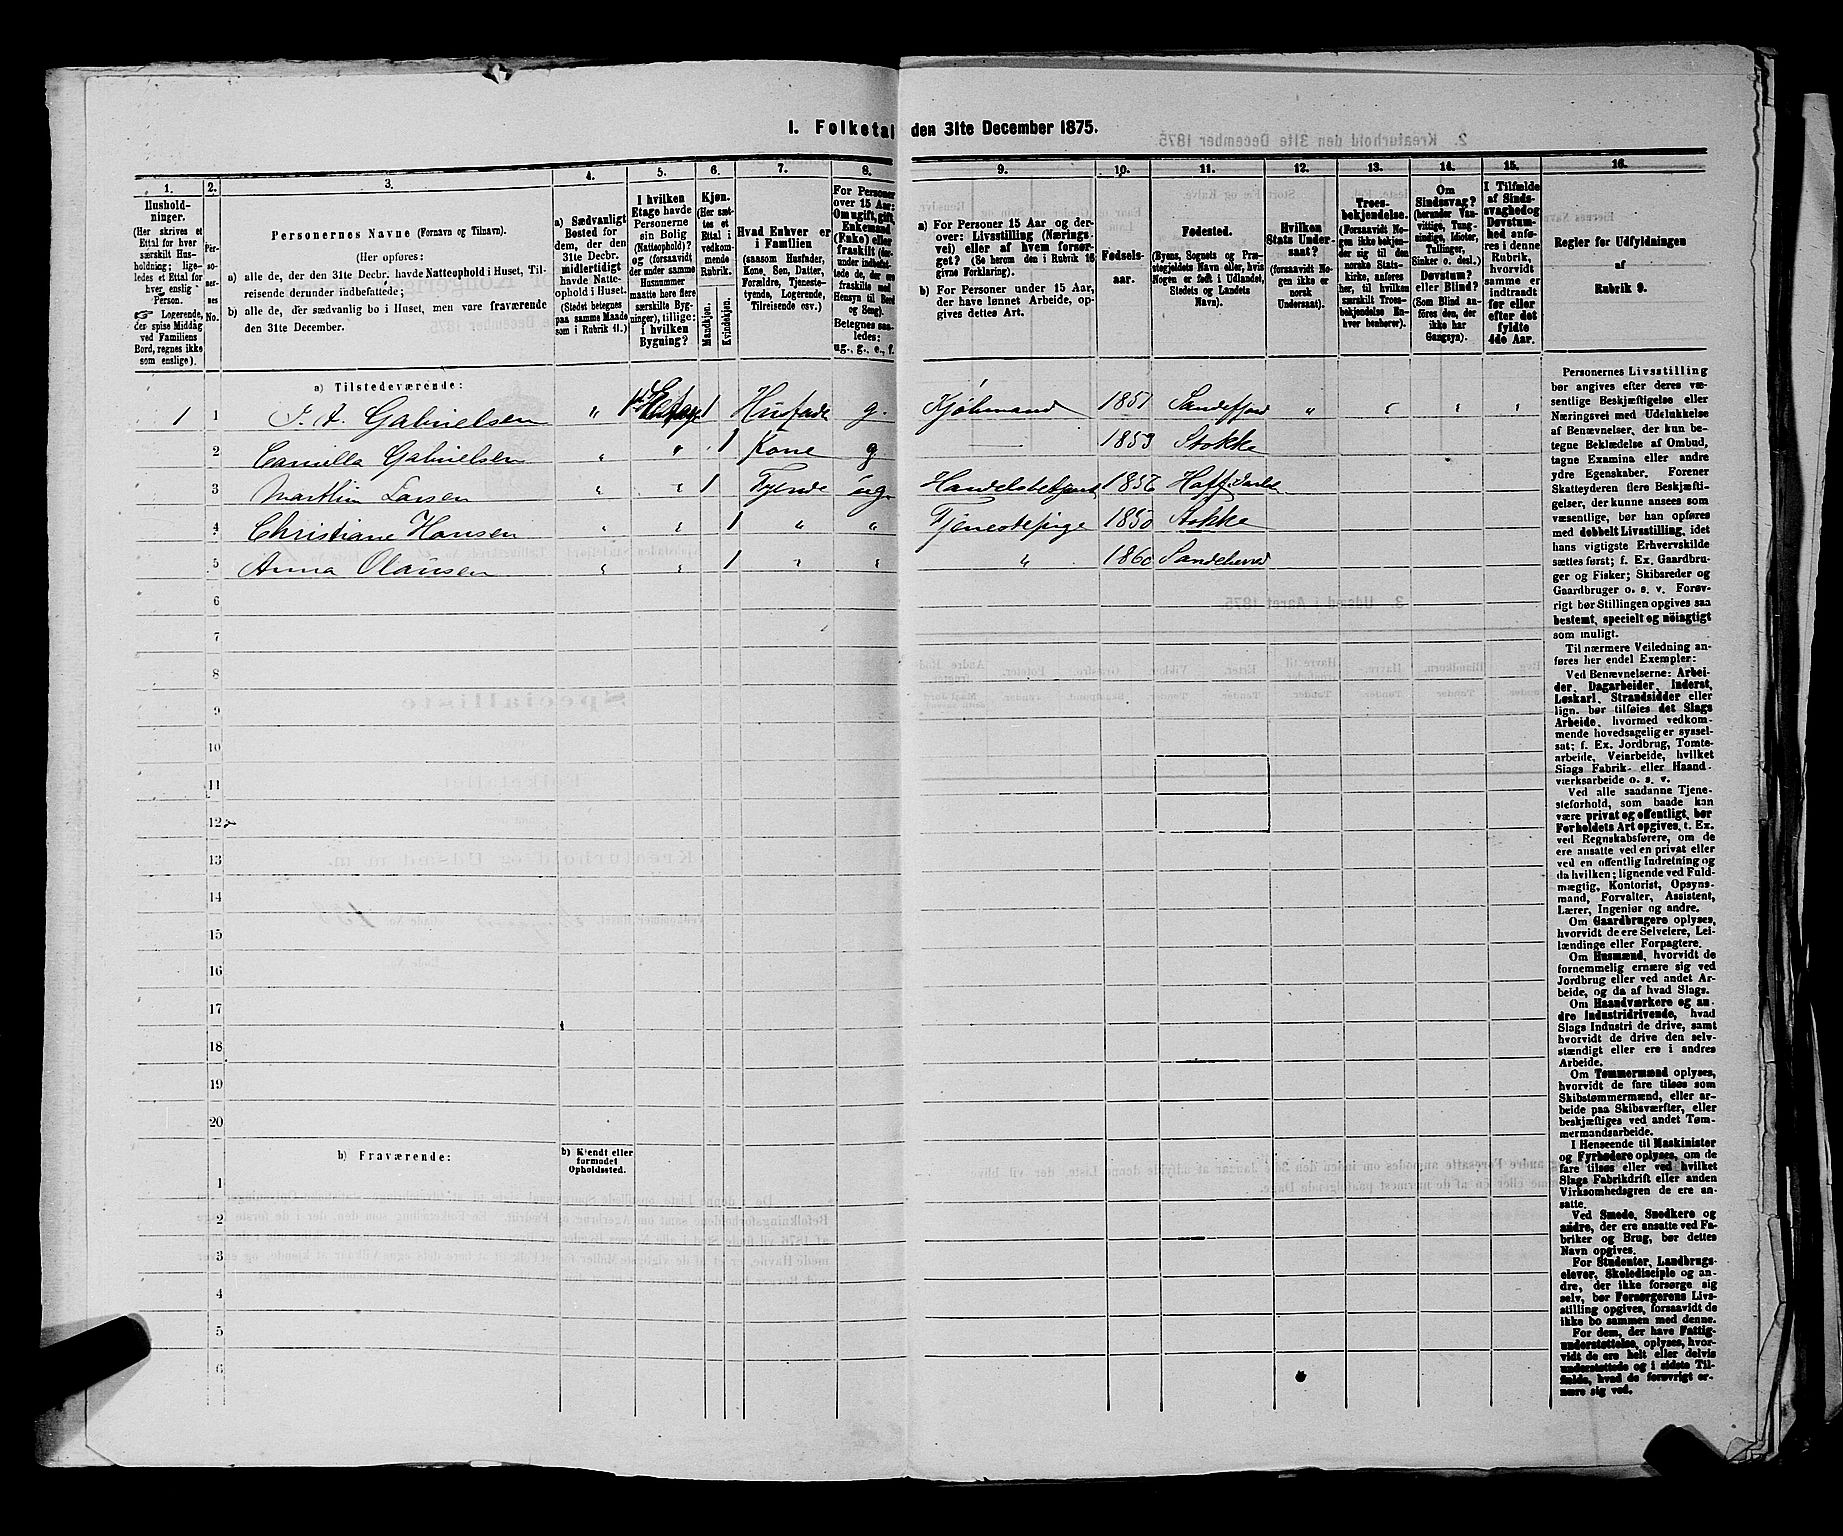 I. Folketal den 31te December 1875.
1. 2. 3. 4. 5. 6. 7. 8. 9. 10. 11. 12. 13. 14. 15. 16.
Husholdninger.
(Her skrives et
Ettal for hver
særskilt Husholdning; ligeledes et Ettal for
hver enslig
Person.
Logerende,
der spise Middag
ved Familiens
Bord, regnes ikke
som enslige).
Personernes No.
Personernes Navne (Fornavn og Tilnavn).
(Her opføres:
a) alle de, der den 31te Decbr. havde Natteophold i Huset, Tilreisende derunder indbefattede;
b) alle de, der sædvanlig bo i Huset, men vare fraværende
den 31te December.
a) Sædvanligt
Bosted for
dem, der den
31te Decbr.
midlertidigt
havde Natteophold i Huset.
(Stedet betegnes
paa samme Maade
som i Rubrik 11.)
I hvilken
Etage havde
Personerne
sin Bolig
(Natteophold)?
og (forsaavidt
der under samme
Husnummer
maatte høre flere
særskilte Bygninger), tillige:
I hvilken
Bygning?
Kjøn.
(Her sættes et
Ettal i
vedkommende
Rubrik.
Mandkjøn.
Kvindekjøn.
Hvad Enhver er
i Familien
(saasom Husfader,
Kone, Søn, Datter,
Forældre, Tjenestetyende, Logerende,
Tilreisende osv.)
For Personer
over 15 Aar:
Om ugift, gift,
Enkemand
(Enke) eller
fraskilt
Betegnes saaledes:
ug., g., e., f.
a) For Personer 15 Aar og derover: Livsstilling (Næringsvei) eller af hvem forsørget? (Se herom den i Rubrik 16
givne Forklaring).
b) For Personer under 15 Aar,
der have lønnet Arbeide, opgives dettes Art.
Fødselsaar.
Fødested.
(Byens, Sognets og Præstegjeldets Navn eller, hvis
Nogen er født i Udlandet,
Stedets og Landets
Navn).
Hvilken
Stats Undersaat?
(forsaavidt Nogen ikke er
norsk
Undersaat).
Troesbekjendelse.
(Forsaavidt Nogen ikke bekjender sig til den
norske Statskirke, anføres
her, til hvilken
særskilt Troesbekjendelse Enhver henhører).
Om
Sindssvag?
(herunder Vanvittige, Tungsindige, Idioter,
Tullinger,
Sinker o. desl.)
Døvstum?
eller Blind?
(Som Blind anføres den, der
ikke har
Gangsyn).
I Tilfælde
af Sindssvaghed og
Døvstumhed anføres i denne
Rubrik,
hvorvidt
samme er
indtraadt
før eller
efter det
fyldte
4de Aar.
Regler for Udfyldningen
af
Rubrik 9.
a) Tilstedeværende:
1 1 J. A. Gabrielsen " Etage 1 Husfade g. Kjøbmand 1851 Sandefjord "
2 Camilla Gabrielsen " " 1 Kone g 1853 Stokke
3 Marthin Larsen " " 1 Tyende ug Handelsbetjent 1856
4 Christiane Hansen " " 1 " " Tjenestepige 1850 Stokke
5 Anna Olausen " " 1 " " " 1860 Sandeherred
6
7
8
9
10
11
12
13
14
15
16
17
18
19
20
b) Fraværende:
b) Kjendt eller
formodet
Opholdssted.
1
2
3
4
5
6
Personernes Livsstilling
bør angives efter deres væsentlige Beskjæftigelse eller
Næringsvei med Udelukkelse
af Benævnelser, der kun betegne Beklædelse af Ombud,
tagne Examina eller andre
ydre Egenskaber. Forener
Skatteyderen flere Beskjæftigelser, der kunne ansees som
væsentlige, bør han opføres
med dobbelt Livsstilling, idet
hans vigtigste Erhvervskilde
sættes først; f. Ex. Gaardbruger og Fisker; Skibsreder og
Gaardbruger o. s. v. Forøvrigt bør Stillingen opgives saa
bestemt, specielt og nöiagtigt
som muligt.
Til nærmere Veiledning anføres her endel Exempler:
Ved Benævnelserne: Arbeider, Dagarbeider, Inderst,
Løskarl, Strandsidder eller
lign. bør tilføies det Slags
Arbeide, hvormed vedkommende hovedsagelig er sysselsat; f. Ex. Jordbrug, Tomtearbeide, Veiarbeide, hvilket
Slags Fabrik- eller Haandværksarbeide o. s. v.
Ved alle saadanne Tjenesteforhold, som baade kan
være privat og offentligt, bør
Forholdets Art opgives, t. Ex.
ved Regnskabsførere, om de
ere ansatte ved en privat eller
ved en offentlig Indretning og
da hvilken; lignende ved Fuldmægtig, Kontorist, Opsynsmand, Forvalter, Assistent,
Lærer, Ingeniør og andre.
Om Gaardbrugere oplyses,
hvorvidt de ere Selveiere, Leilændinge eller Forpagtere.
Om Husmænd, hvorvidt de
fornemmelig ernære sig ved
Jordbrug eller ved andet Arbeide, og da af hvad Slags.
Om Haandværkere og andre Industridrivende, hvad
Slags Industri de drive, samt
hvorvidt de drive den selvstændigt eller ere i andres
Arbeide.
Om Tømmermænd oplyses,
hvorvidt de fare tilsøs som
Skibstømmermænd, eller arbeide paa Skibsværfter, eller
beskjæftiges ved andet Tømmermandsarbeide.
I Henseende til Maskinister
og Fyrbødere oplyses, om de
fare tilsøs eller ved hvilket
Slags Fabrikdrift eller anden
Virksomhedsgren de ere ansatte.
Ved Smede, Snedkere og
andre, der ere ansatte ved Fabriker og Brug, bør dettes
Navn opgives.
For Studenter, Landbrugselever, Skoledisciple og andre, der ikke forsørge sig
selv, bør Forsørgerens Livsstilling opgives, forsaavidt de
ikke bo sammen med denne.
For dem, der have Fattigunderstøttelse, oplyses, hvorvidt de ere helt eller delvis
understøttede og i sidste Tilfælde, hvad de forøvrigt ernære sig ved.